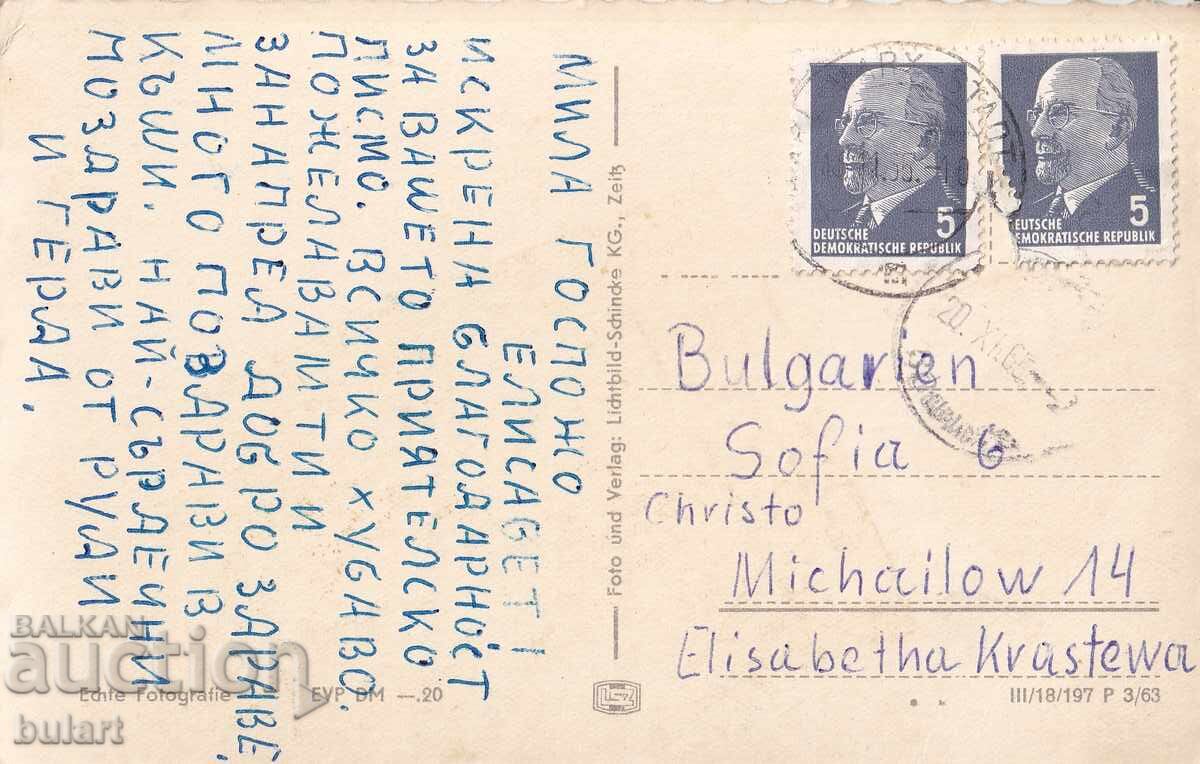 МИЛА ГОСПОЖО
ЕЛИСАБЕТ!
ИСКРЕНА БЛАГОДАРНОСТ
ЗА ВАШЕТО ПРИЯТЕЛСКО
ПИСМО. ВСИЧКО ХУБАВО.
ПОЖЕЛАВАИТИ И
ЗАНАПРЕД ДОБРО ЗДРАВЕ,
МНОГО ПОЗДРАВИ В
КЪШИ. НАЙ-СЪРДЕЧНИ
ПОЗДРАВИ ОТ РУДИ
И ГЕРДА.
Foto und Verlag: Lichtbild-Schincke KG., Zeitz
5
DEUTSCHE
DEMOKRATISCHE REPUBLIK
5
DEUTSCHE
DEMOKRATISCHE REPUBLIK
20. XII
Bulgarien
Sofia 6
Christo
Michailow 14
Elisabetha Krastewa
Echte Fotografie EVP DM —.20
III/18/197 P 3/63
BALKAN
auction
bulart